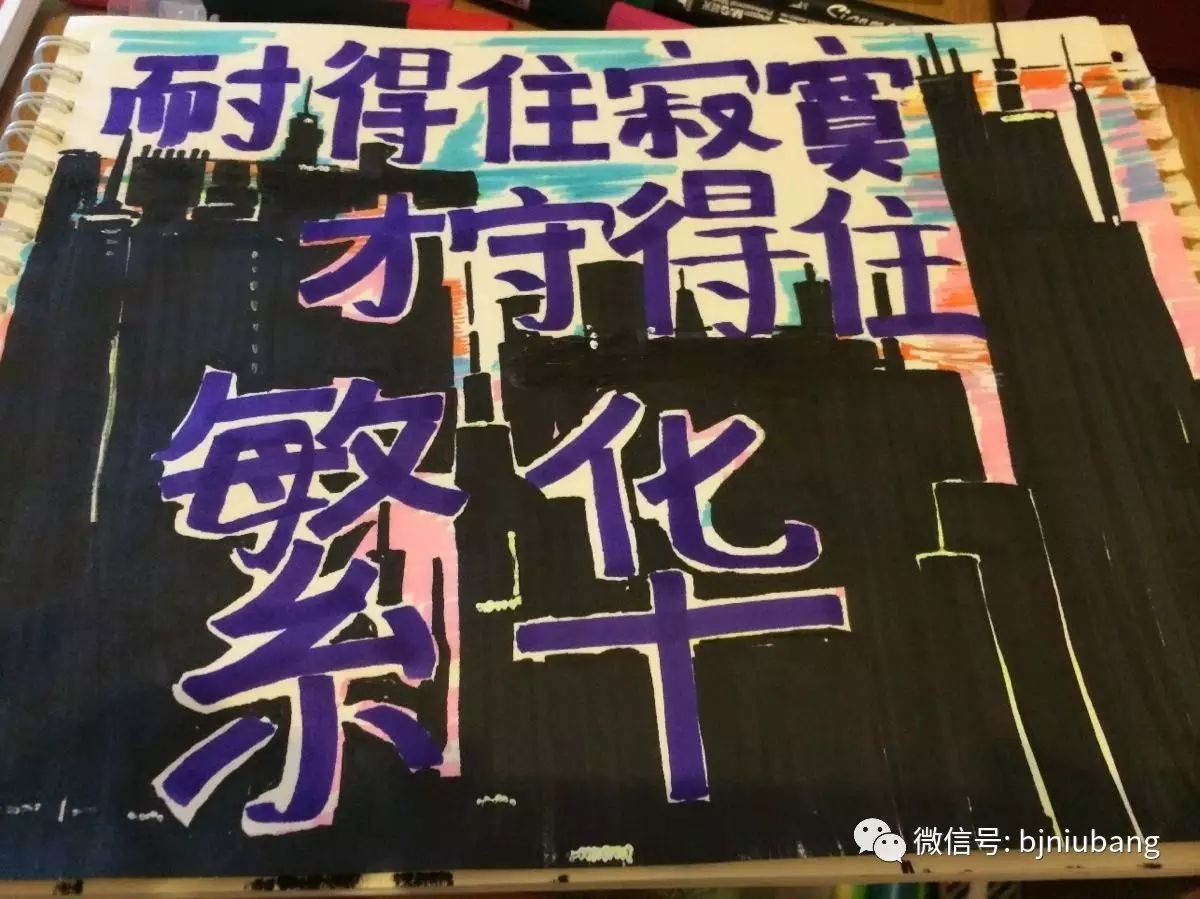 耐得住寂寞
才守得住
繁华
微信号: bjniubang